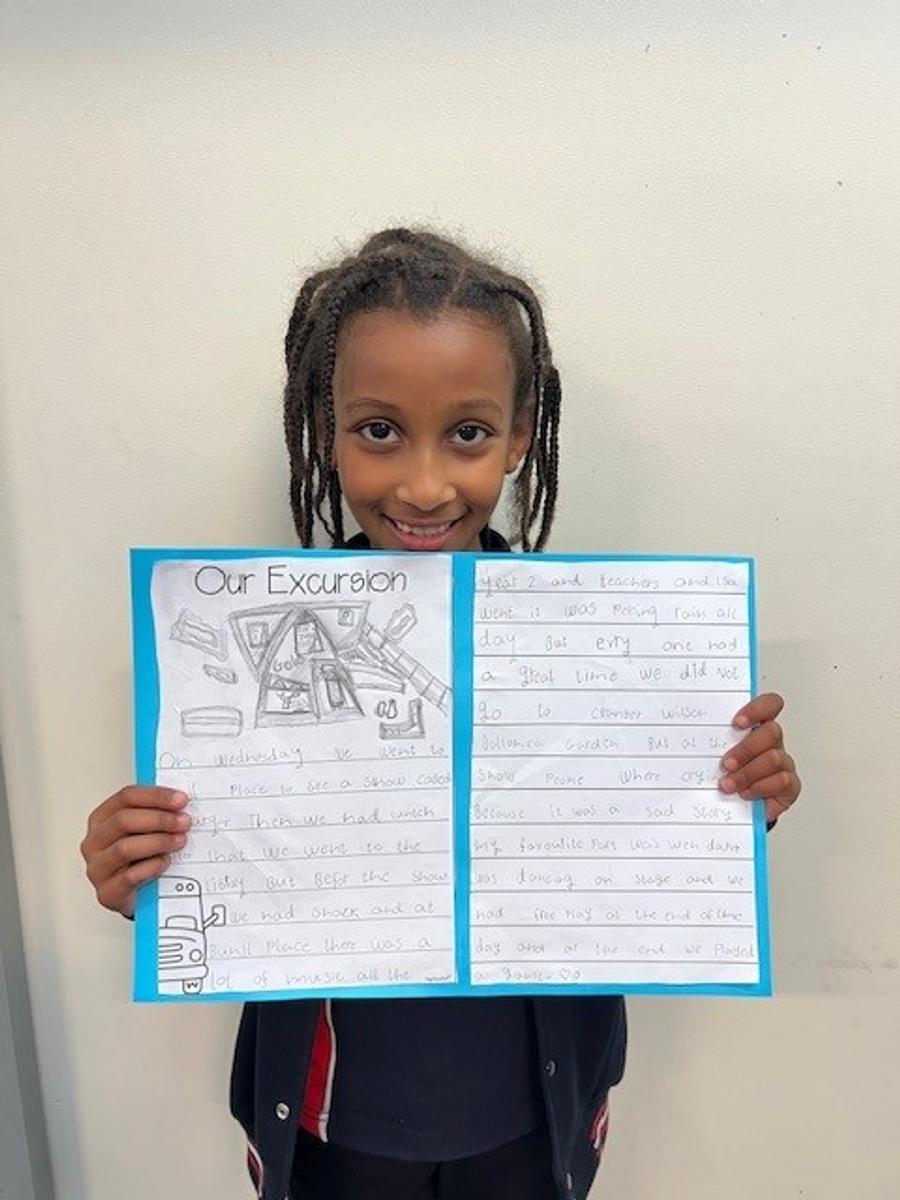 Our Excursion
Gold
On Wednesday we went to
Place to see a show called
Then we had lunch
that we went to the
But Befor the show
we had snack and at
Bunjil Place there was a
lot of music all the
year 2 and teachers and Lisa
went it was Poring rain all
day But evry one had
a great time we did not
go to cranber wilson
Botanica Garden But at the
show Peome where cryin
Because it was a sad story
my favoulite Part was wen
was dancing on stage and we
had free Play at the end of the
day and at the end we Played
a